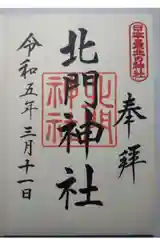 日本最北の神社
奉拝
北門神社
北門神社
令和五年三月十一日